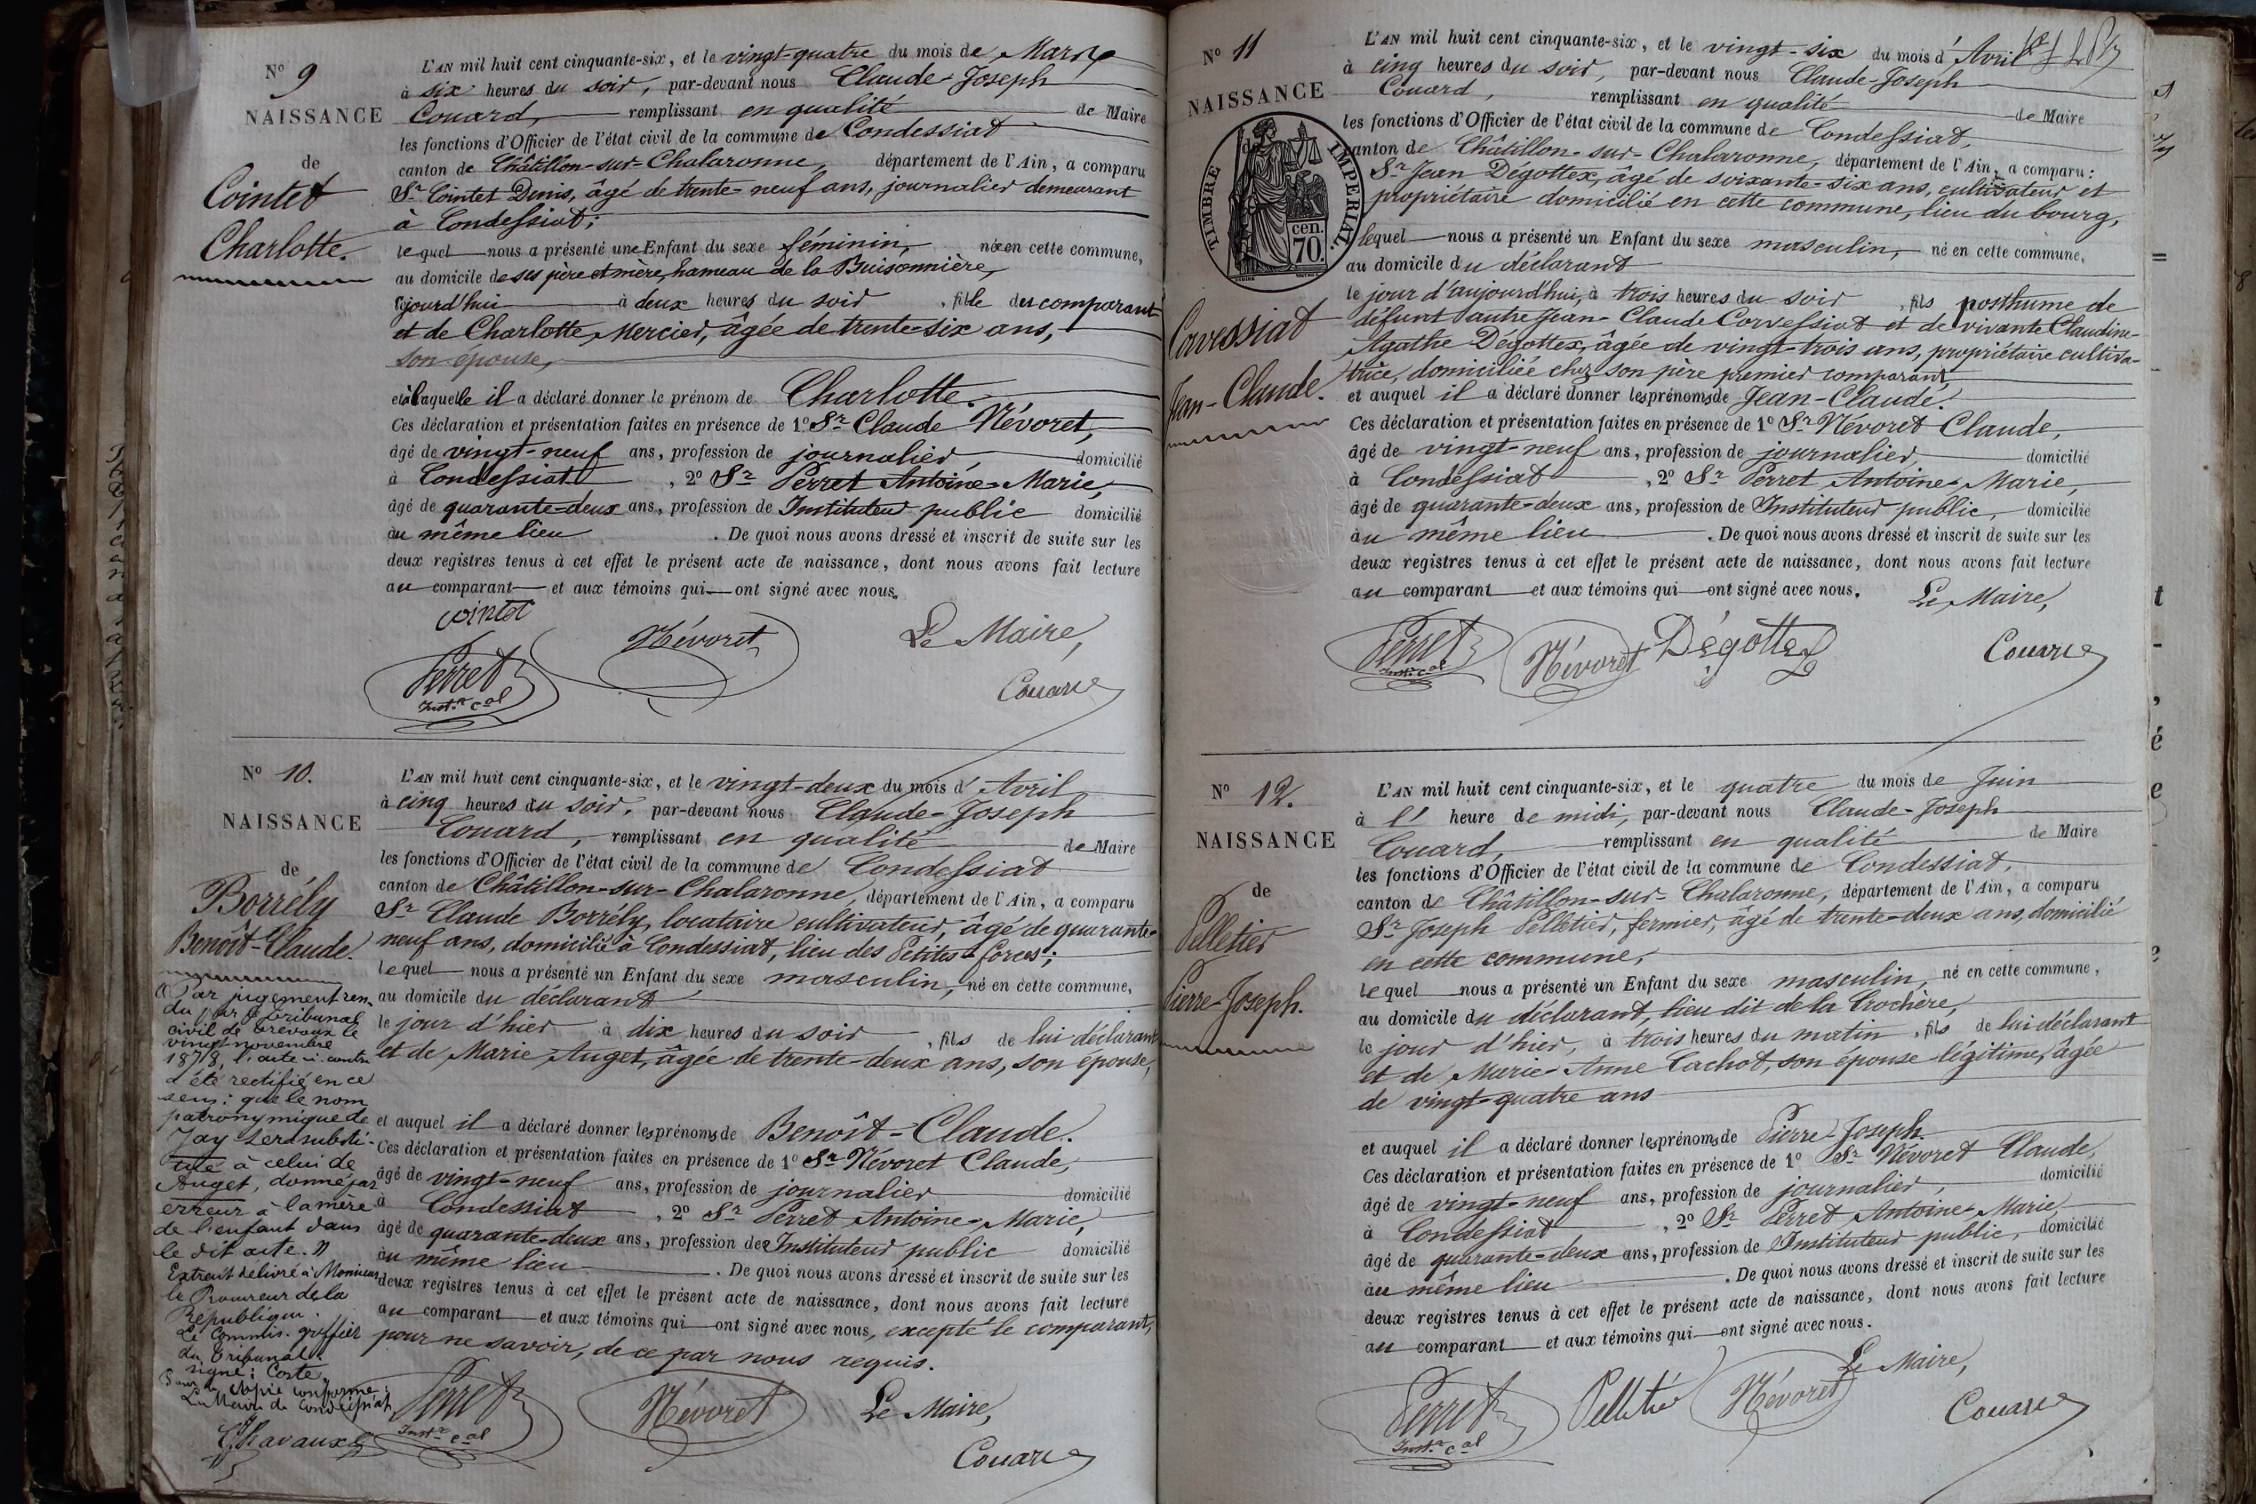 N° 9
NAISSANCE
de
Cointet
Charlotte.
L'AN mil huit cent cinquante-six, et le vingt-quatre du mois de Mars
à six heures du soir, par-devant nous Claude-Joseph
Couard, remplissant en qualité de Maire
les fonctions d'Officier de l'état civil de la commune de Condessiat
canton de Châtillon-sur-Chalaronne, département de l'Ain, a comparu
Sr Cointet Denis, âgé de trente-neuf ans, journalier demeurant
à Condessiat;
lequel nous a présenté une Enfant du sexe féminin, née en cette commune,
au domicile de ses père et mère, hameau de la Buisonnière,
aujourd'hui à deux heures du soir, fille du comparant
et de Charlotte Mercier, âgée de trente-six ans,
son épouse,
et à laquelle il a déclaré donner le prénom de Charlotte.
Ces déclaration et présentation faites en présence de 1° Sr Claude Névoret,
âgé de vingt-neuf ans, profession de journalier, domicilié
à Condessiat, 2° Sr Perret Antoine-Marie,
âgé de quarante-deux ans, profession de Instituteur public domicilié
au même lieu. De quoi nous avons dressé et inscrit de suite sur les
deux registres tenus à cet effet le présent acte de naissance, dont nous avons fait lecture
au comparant et aux témoins qui ont signé avec nous.
Cointet
Névoret
Le Maire,
Perret
Instr cal
Couard
N° 10.
NAISSANCE
de
Borrély
Benoît-Claude.
L'AN mil huit cent cinquante-six, et le vingt-deux du mois d'Avril
à cinq heures du soir, par-devant nous Claude-Joseph
Couard, remplissant en qualité de Maire
les fonctions d'Officier de l'état civil de la commune de Condessiat
canton de Châtillon-sur-Chalaronne, département de l'Ain, a comparu
Sr Claude Borrély, locataire cultivateur, âgé de quarante-
neuf ans, domicilié à Condessiat, lieu des Petites-forces;
lequel nous a présenté un Enfant du sexe masculin, né en cette commune,
au domicile du déclarant
le jour d'hier à dix heures du soir, fils de lui déclarant
et de Marie Auget, âgée de trente-deux ans, son épouse,
et auquel il a déclaré donner les prénoms de Benoît-Claude.
Ces déclaration et présentation faites en présence de 1° Sr Névoret Claude,
âgé de vingt-neuf ans, profession de journalier domicilié
à Condessiat, 2° Sr Perret Antoine-Marie,
âgé de quarante-deux ans, profession de Instituteur public domicilié
au même lieu. De quoi nous avons dressé et inscrit de suite sur les
deux registres tenus à cet effet le présent acte de naissance, dont nous avons fait lecture
au comparant et aux témoins qui ont signé avec nous, excepté le comparant,
pour ne savoir, de ce par nous requis.
Par jugement ren-
du par le tribunal
civil de Trévoux le
vingt novembre
1878, l'acte ci-contre
a été rectifié en ce
sens: que le nom
patronymique de
Jay sera substi-
tué à celui de
Auget, donné par
erreur à la mère
de l'enfant dans
le dit acte.
Extrait délivré à Monsieur
le Procureur de la
République.
Le Commis-greffier
du Tribunal
signé: Coste
Pour copie conforme:
Le Maire de Condessiat,
Chavaux
Perret
Instr cal
Névoret
Le Maire,
Couard
N° 11
NAISSANCE
de
TIMBRE IMPÉRIAL
cen. 70.
Corvessiat
Jean-Claude.
L'AN mil huit cent cinquante-six, et le vingt-six du mois d'Avril
à cinq heures du soir, par-devant nous Claude-Joseph
Couard, remplissant en qualité de Maire
les fonctions d'Officier de l'état civil de la commune de Condessiat,
canton de Châtillon-sur-Chalaronne, département de l'Ain, a comparu:
Sr Jean Dégottex, âgé de soixante-six ans, cultivateur et
propriétaire domicilié en cette commune, lieu du bourg,
lequel nous a présenté un Enfant du sexe masculin, né en cette commune,
au domicile du déclarant
le jour d'aujourd'hui, à trois heures du soir, fils posthume de
défunt autre Jean-Claude Corvessiat et de vivante Claudine-
Agathe Dégottex, âgée de vingt-trois ans, propriétaire cultiva-
trice, domiciliée chez son père premier comparant,
et auquel il a déclaré donner les prénoms de Jean-Claude.
Ces déclaration et présentation faites en présence de 1° Sr Névoret Claude,
âgé de vingt-neuf ans, profession de journalier, domicilié
à Condessiat, 2° Sr Perret Antoine-Marie,
âgé de quarante-deux ans, profession de Instituteur public, domicilié
au même lieu. De quoi nous avons dressé et inscrit de suite sur les
deux registres tenus à cet effet le présent acte de naissance, dont nous avons fait lecture
au comparant et aux témoins qui ont signé avec nous.
Le Maire,
Perret
Instr cal
Névoret
Dégottex
Couard
N° 12.
NAISSANCE
de
Pelletier
Pierre-Joseph.
L'AN mil huit cent cinquante-six, et le quatre du mois de Juin
à l' heure de midi, par-devant nous Claude-Joseph
Couard, remplissant en qualité de Maire
les fonctions d'Officier de l'état civil de la commune de Condessiat,
canton de Châtillon-sur-Chalaronne, département de l'Ain, a comparu
Sr Joseph Pelletier, fermier, âgé de trente-deux ans, domicilié
en cette commune,
lequel nous a présenté un Enfant du sexe masculin, né en cette commune,
au domicile du déclarant, lieu dit de la Crochère,
le jour d'hier, à trois heures du matin, fils de lui déclarant
et de Marie-Anne Cachot, son épouse légitime, âgée
de vingt-quatre ans
et auquel il a déclaré donner les prénoms de Pierre-Joseph.
Ces déclaration et présentation faites en présence de 1° Sr Névoret Claude,
âgé de vingt-neuf ans, profession de journalier, domicilié
à Condessiat, 2° Sr Perret Antoine-Marie,
âgé de quarante-deux ans, profession de Instituteur public, domicilié
au même lieu. De quoi nous avons dressé et inscrit de suite sur les
deux registres tenus à cet effet le présent acte de naissance, dont nous avons fait lecture
au comparant et aux témoins qui ont signé avec nous.
Le Maire,
Perret
Instr cal
Pelletier
Névoret
Couard